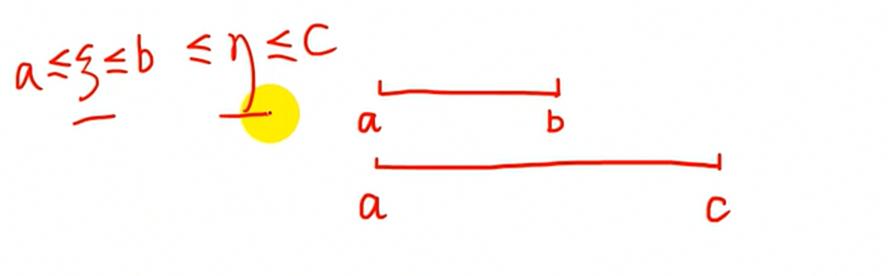 a≤ξ≤b ≤η≤c
a b
a c